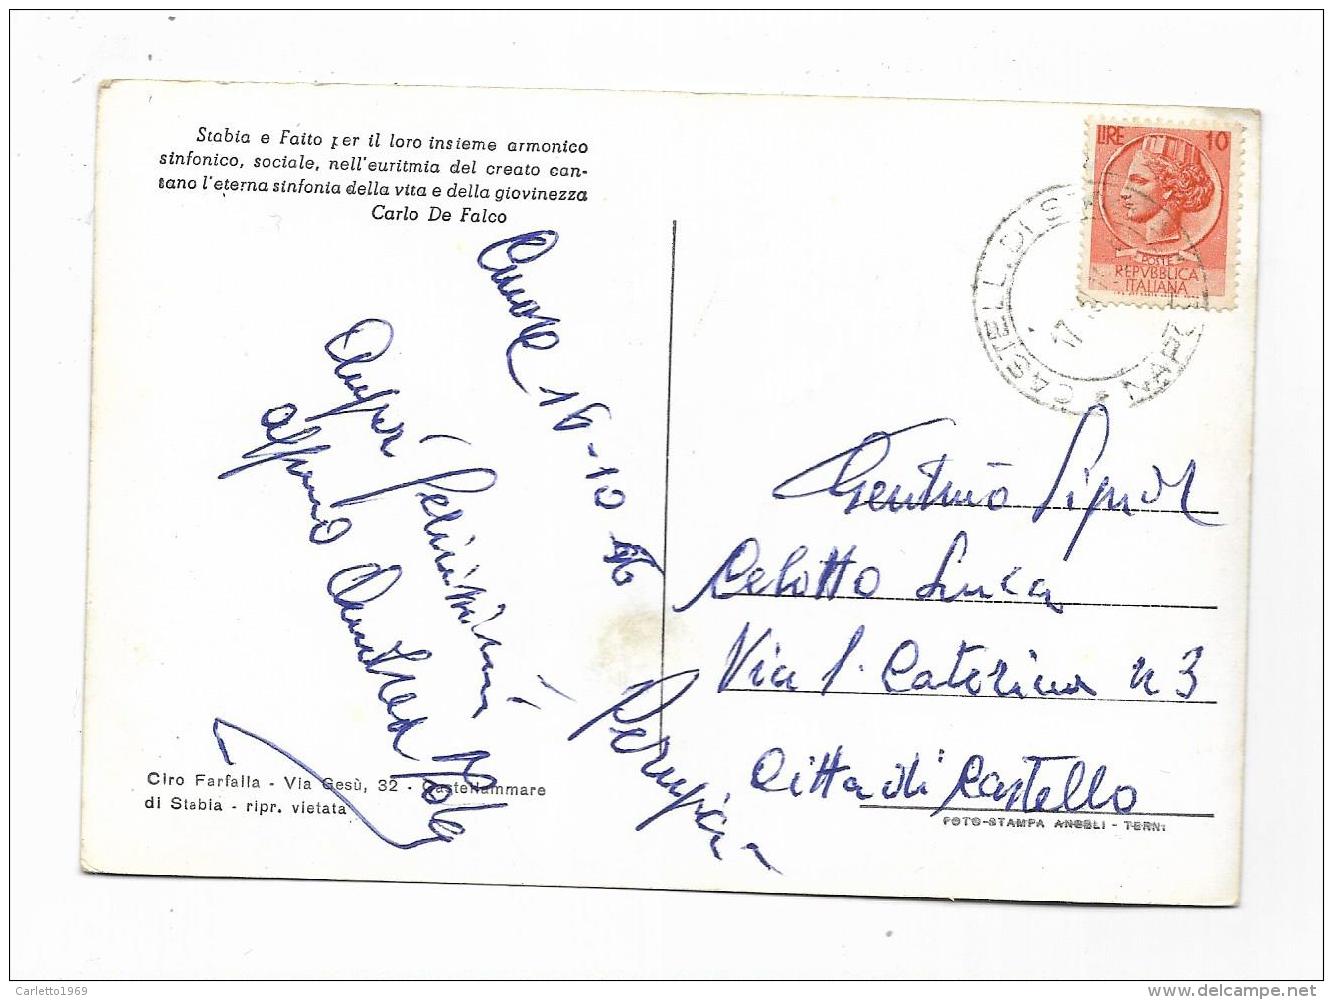 Stabia e Faito per il loro insieme armonico
sinfonico, sociale, nell'euritmia del creato can-
tano l'eterna sinfonia della vita e della giovinezza
Carlo De Falco
16-10-56
Auguri
Gentma Signor
Celotto Luca
Via S. Caterina n 3
Città di Castello
Perugia
LIRE 10
POSTE
REPVBBLICA
ITALIANA
CASTELL. DI STAB
NAPOLI
17
Ciro Farfalla - Via Gesù, 32 - Castellammare
di Stabia - ripr. vietata
FOTO-STAMPA ANGELI - TERNI
Carletto1969
delcampe.net